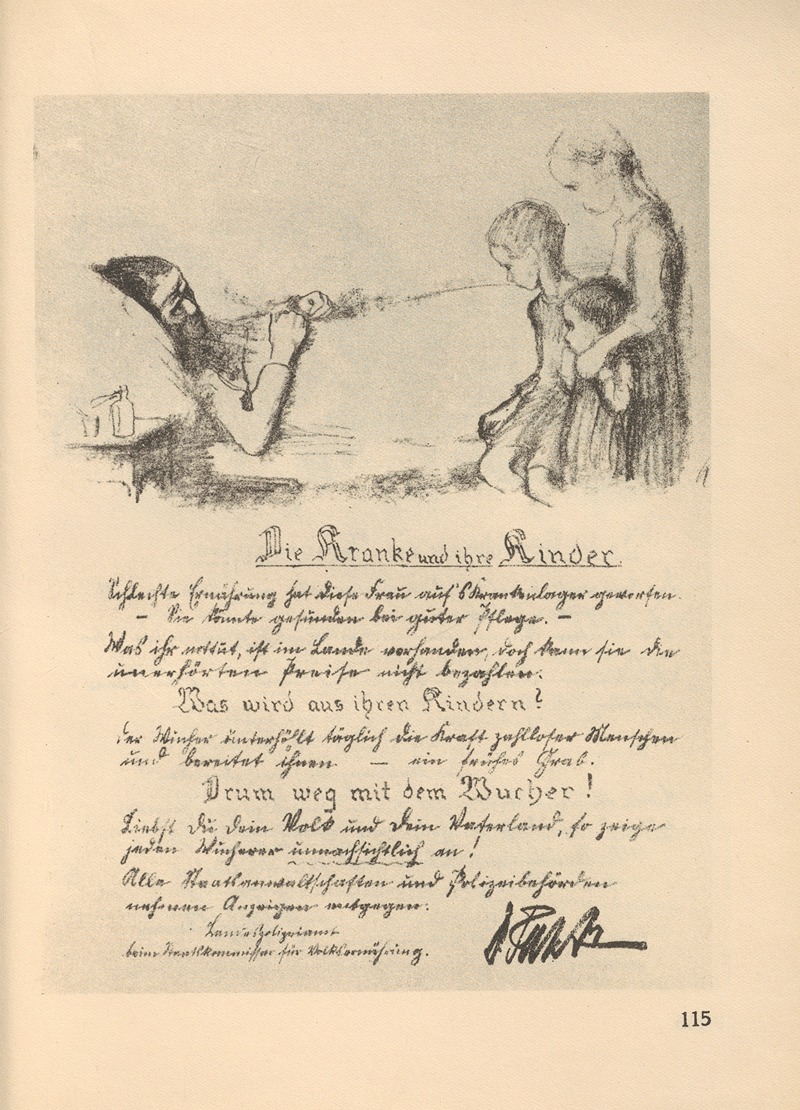 Die Kranke und ihre Kinder.
Schlechte Ernährung hat diese Frau auf's Krankenlager geworfen.
– Sie könnte gesunden bei guter Pflege. –
Was ihr nottut, ist im Lande vorhanden, doch kann sie die
unerhörten Preise nicht bezahlen.
Was wird aus ihren Kindern?
Der Wucher unterhöllt täglich die Kraft zahlloser Menschen
und bereitet ihnen – ein frühes Grab.
Drum weg mit dem Wucher!
Liebst Du Dein Volk und Dein Vaterland, so zeige
jeden Wucherer unnachsichtlich an!
Alle Staatsanwaltschaften und Polizeibehörden
nehmen Anzeigen entgegen.
Landespolizeiamt
beim Staatskommissar für Volksernährung.
115